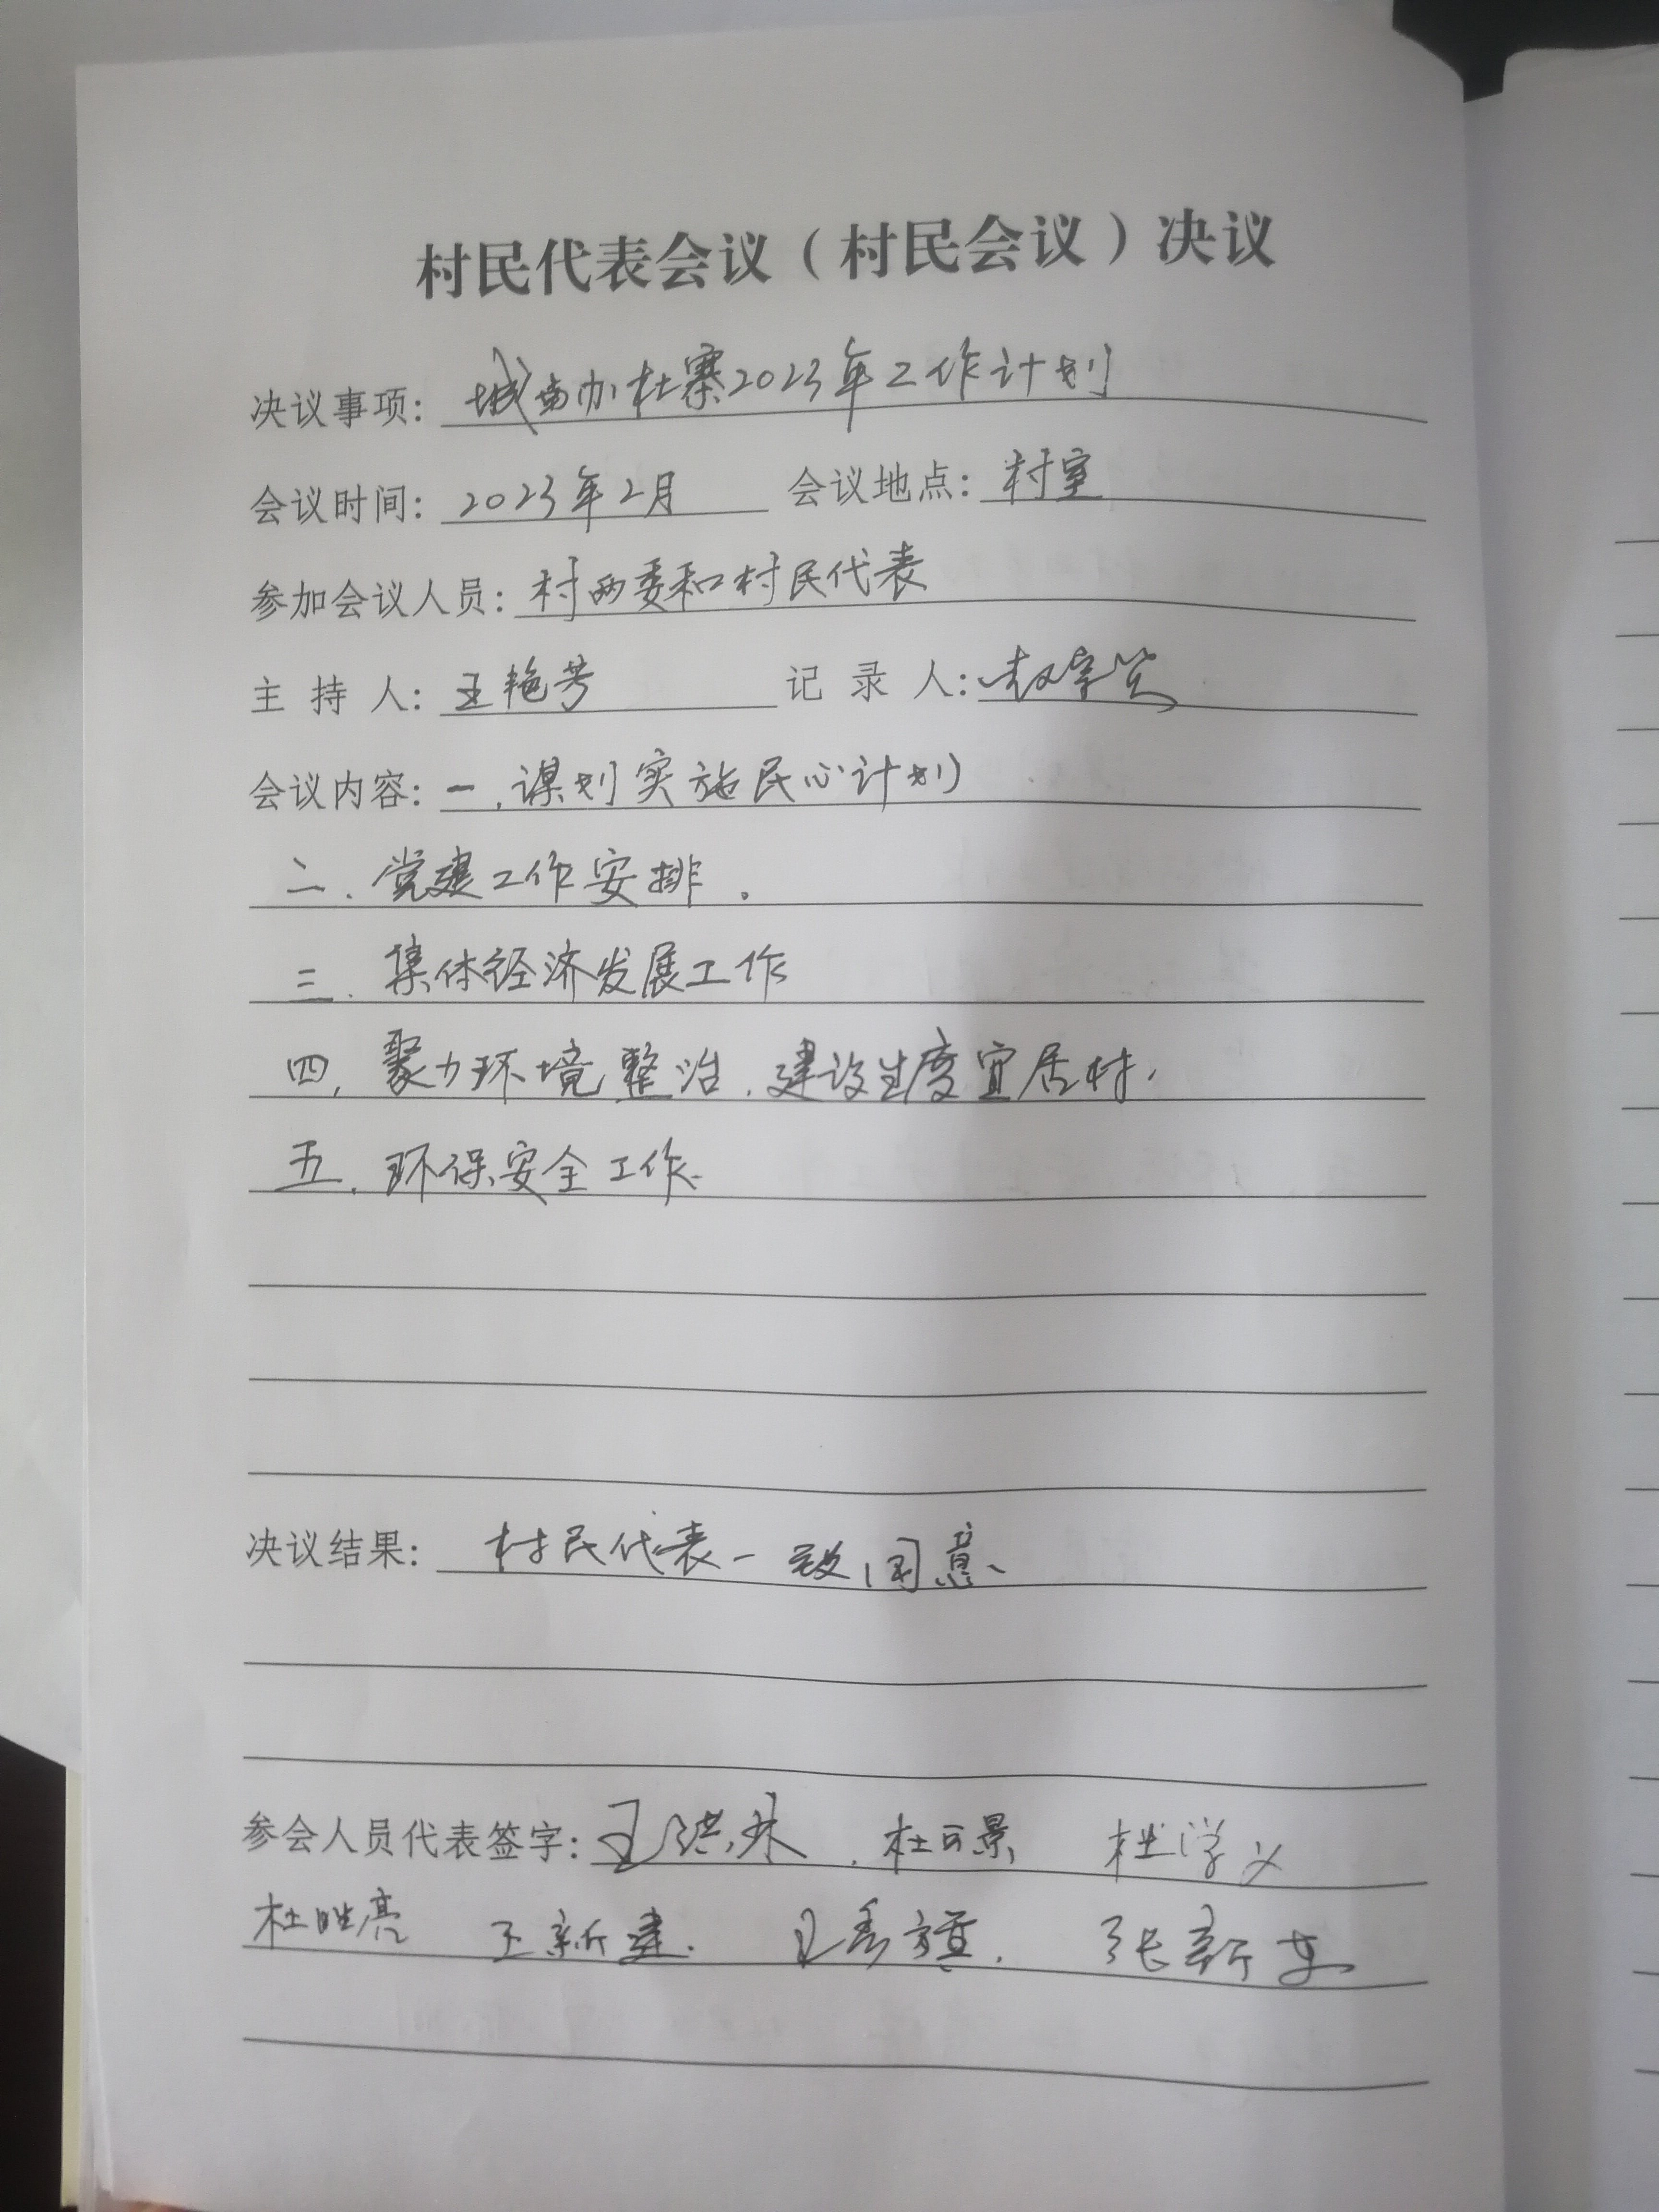 村民代表会议（村民会议）决议
决议事项：城南办杜寨2023年工作计划
会议时间：2023年2月 会议地点：村室
参加会议人员：村两委和村民代表
主持人：王艳芳 记录人：
会议内容：一、谋划实施民心计划
二、党建工作安排。
三、集体经济发展工作
四、聚力环境整治，建设生度宜居村.
五、环保安全工作.
决议结果：村民代表一致同意、
参会人员代表签字：王洪林、杜可景 杜学义
杜胜亮 王新建. 王秀 . 张新